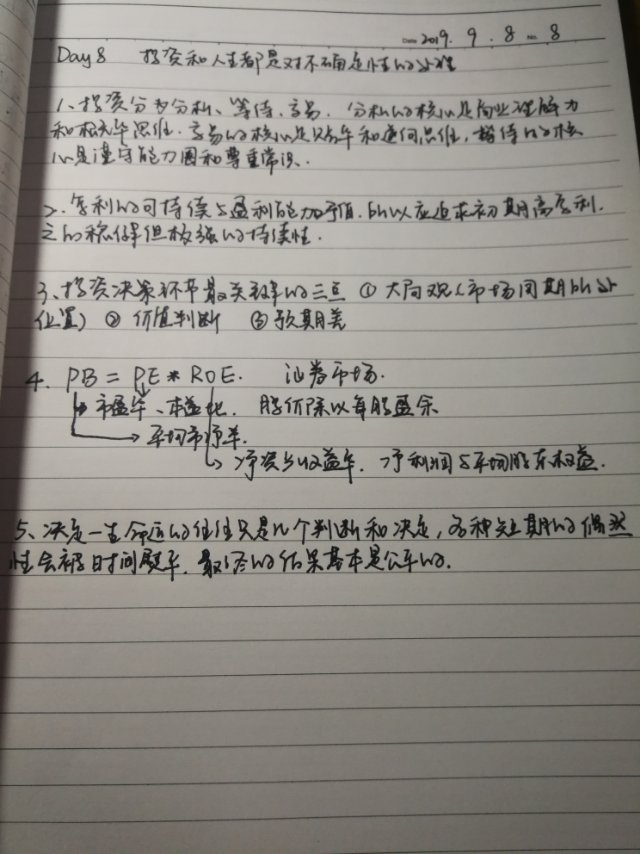 Date 2019. 9. 8 No. 8
Day 8 投资和人生都是对不确定性的处理
1、投资分为分析、等待、交易. 分析的核心是商业理解力
和概率思维. 交易的核心是赔率和逆向思维, 等待的核
心是谨守能力圈和尊重常识.
2. 复利的可持续与盈利能力 所以应追求初期高复利.
之 稳 但 强的持续性.
3、投资决策环节最关键的三点 ① 大局观(市场周期所处
位置) ② 价值判断 ③ 预期差
4. PB = PE * ROE. 证券市场.
市盈率、本益比. 股价除以每股盈余
平均市净率.
净资产收益率. 净利润与平均股东权益.
5、决定一生命运的往往只是几个判断和决定, 各种短期的偶然
性会被时间熨平. 最终的结果基本是公平的.